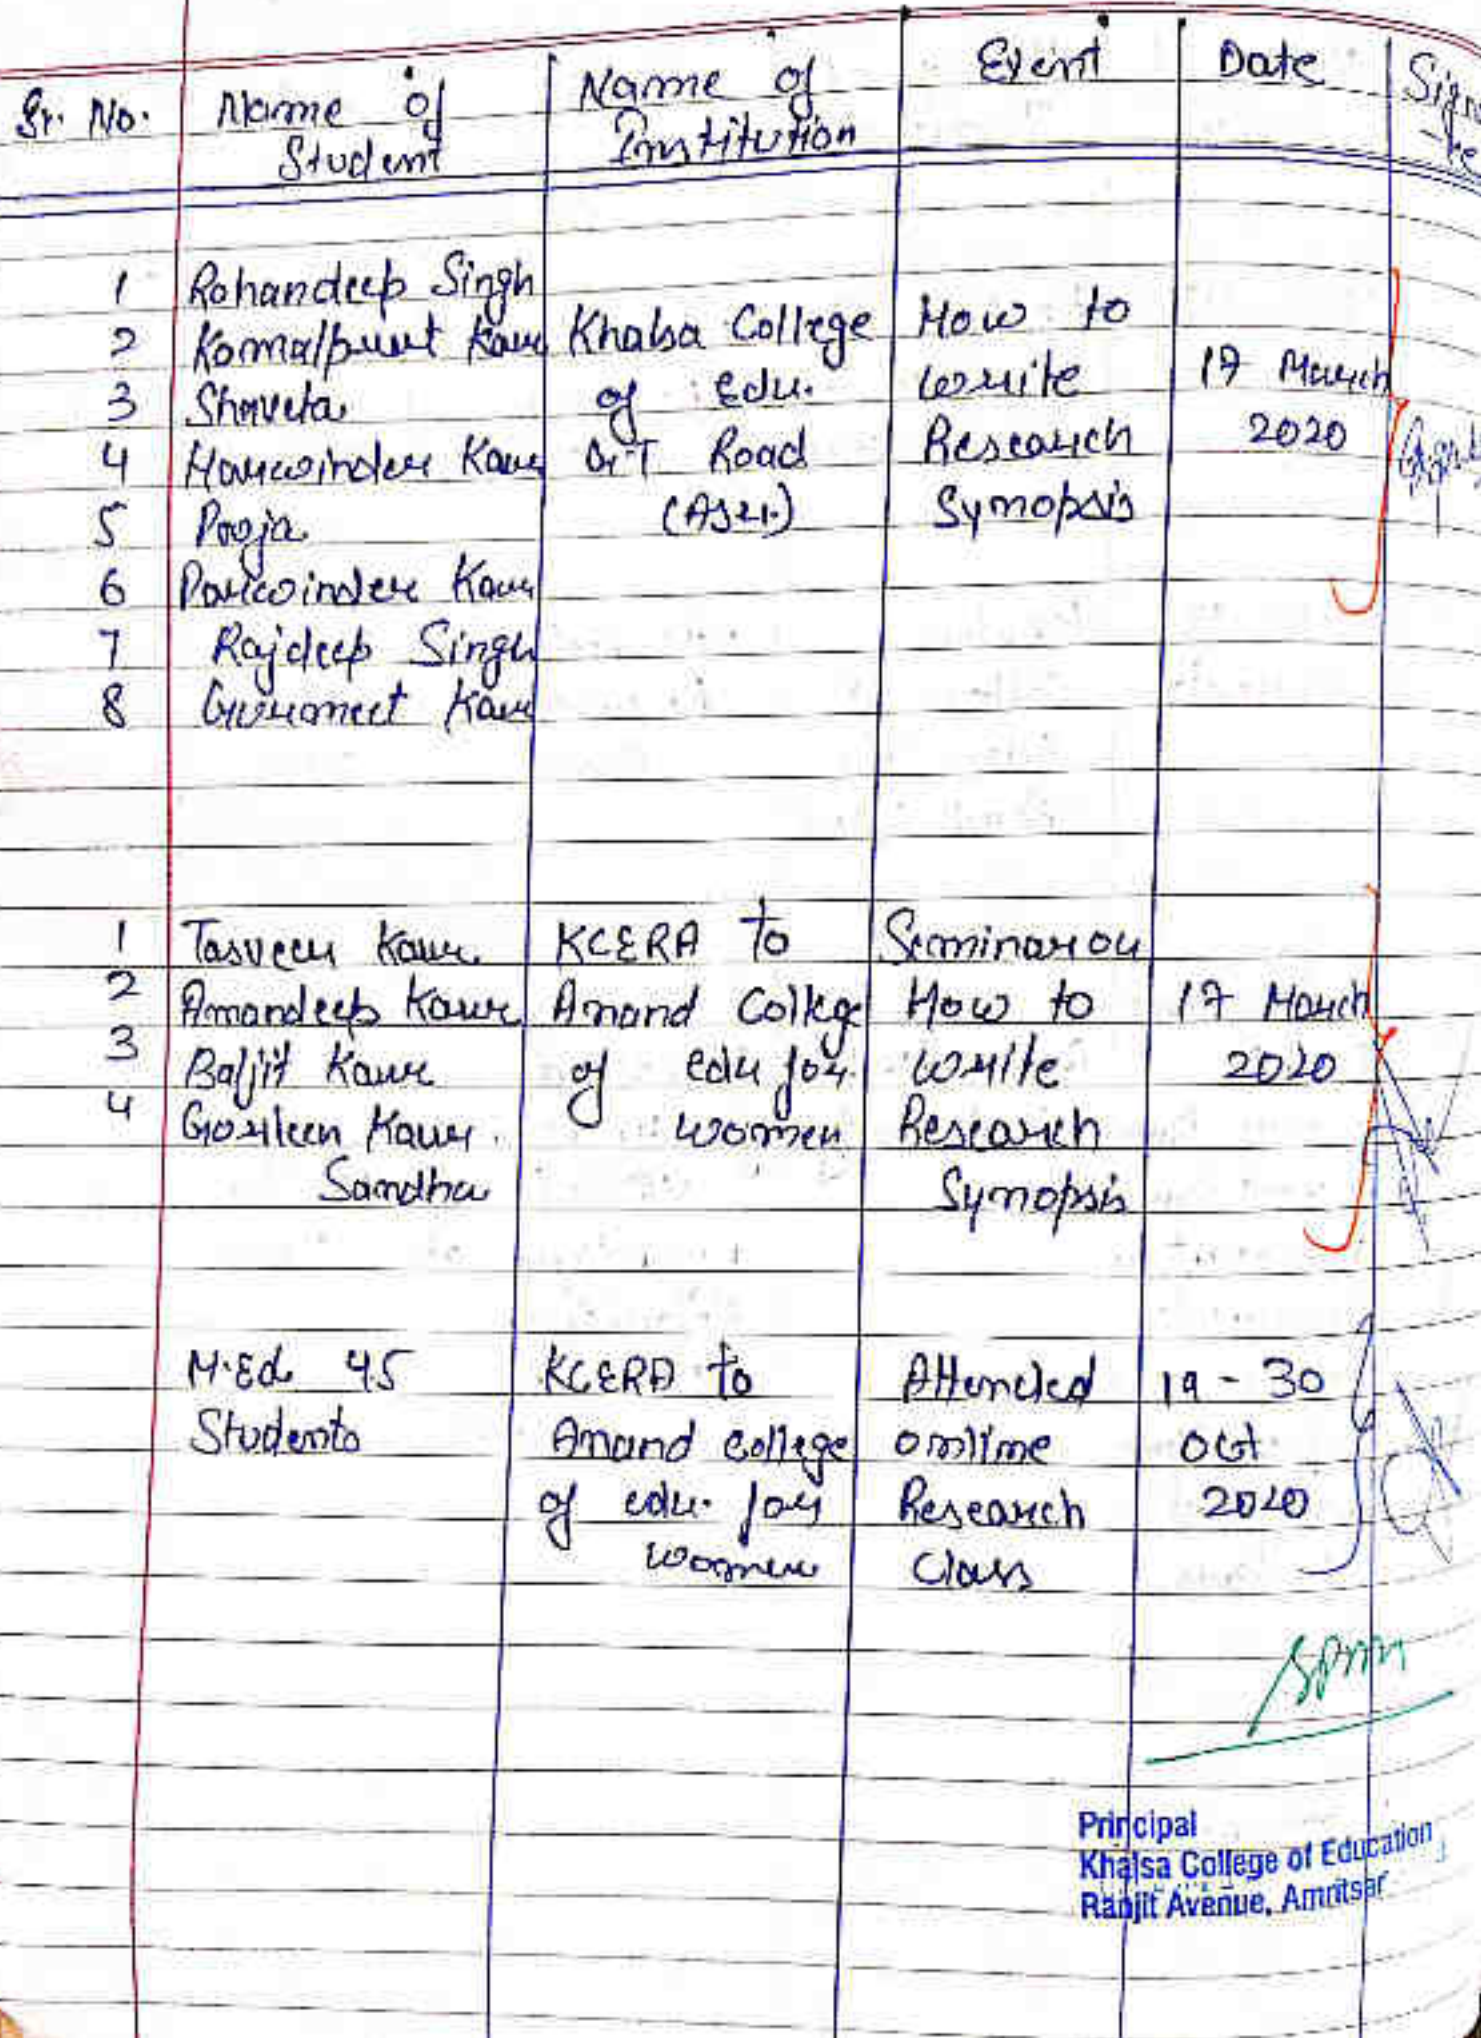 Sr. No. Name of Student Name of Institution Event Date
1 Rohandeep Singh
2 Komalpreet Kaur Khalsa College How to
3 Shaveta of Edu. write 17 March
4 Harwinder Kaur G.T Road Research 2020
5 Pooja (Asr.) Synopsis
6 Parwinder Kaur
7 Rajdeep Singh
8 Gurmeet Kaur
1 Tasveer Kaur. KCERA to Seminar on
2 Amandeep Kaur Anand College How to 17 March
3 Baljit Kaur of edu for write 2020
4 Gorleen Kaur. women Research
Sandhu Synopsis
M.Ed. 45 KCERA to Attended 19 - 30
Students Anand college online Oct
of edu. for Research 2020
women Class
Principal
Khalsa College of Education
Ranjit Avenue, Amritsar